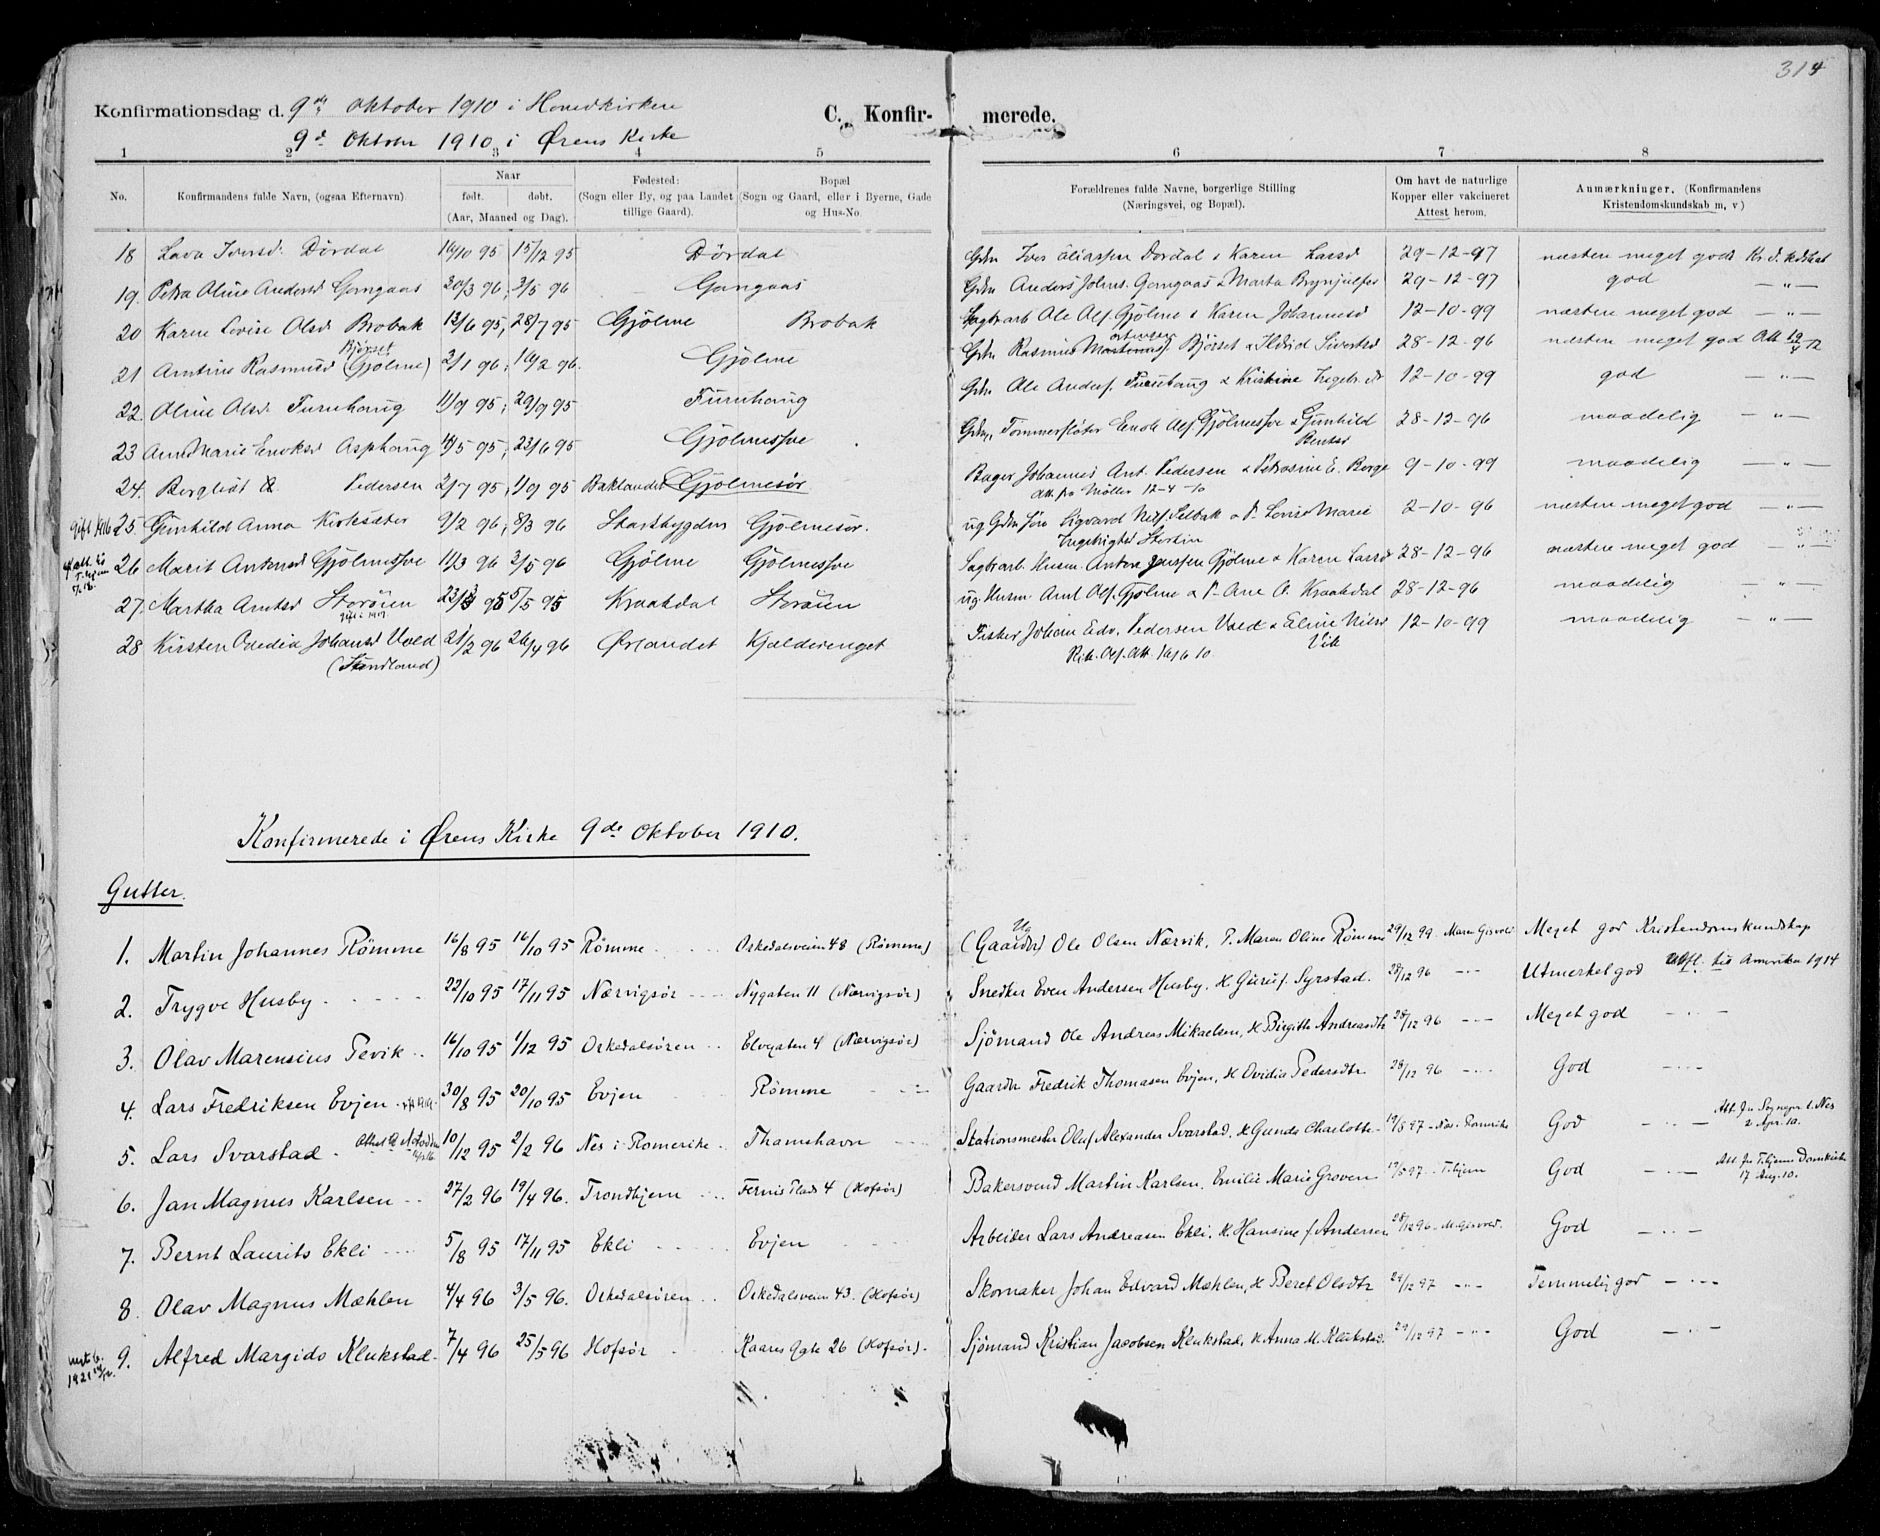 314
Konfirmationsdag d. 9de Oktober 1910 i Hovedkirken
C. Konfirmerede.
9de Oktober 1910 i Ørens Kirke
1 2 3 4 5 6 7 8
No. Konfirmandens fulde Navn, (ogsaa Efternavn) Naar født. døbt. (Aar, Maaned og Dag). Fødested: (Sogn eller By, og paa Landet tillige Gaard). Bopæl (Sogn og Gaard, eller i Byerne, Gade og Hus-No. Forældrenes fulde Navne, borgerlige Stilling (Næringsvei, og Bopæl). Om havt de naturlige Kopper eller vakcineret Attest herom. Anmærkninger, (Konfirmandens Kristendomskundskab m, v)
18 Lava Iversd. Dørdal 16/10 95 15/12 95 Dørdal Gdn Iver Eliassen Dørdal & Karen Larsd 29-12-97 næsten meget god Kr.d.kdskab
19. Petra Oline Andersd Gangaas 20/3 96, 3/5 96 Gangaas Gdn Anders Johns. Gangaas & Marta Brynjulfsd 29-12-97 god — " —
20 Karen Lovise Olsd Brobak 13/6 95, 28/7 95 Gjölme Brobak Sagbrarb Ole Ols. Gjölme & Karen Johannesd 12-10-99 næsten meget god — " —
21 Amtine Rasmusd Bjørset (Gjölme) 2/1 96, 16/2 96. Gjölme Gdn Rasmus Bjørset & Ildrid Sivertsd 28-12-96 næsten meget god Att 12/4 12
22. Oline Olsd Furuhaug 11/9 95, 29/9 95 Furuhaug Gdn Ole Anders. Furuhaug & Kristine Ingebr.d 12-10-99 god — " —
23 Anna Marie Enoksd Asphaug 14/5 95, 23/6 95 Gjölmesfve Gdn, Tømmerfløter Enok Ols. Gjölmesfve & Gunhild Bentsd 28-12-96 maadelig — " —
24. Bergliot Pedersen 2/7 95, 1/9 95 Baklandet Gjölmesør Bager Johannes Ant. Pedersen & Petrosine E. Berge 9-10-99 maadelig — " —
Att. fra Møller 12-4-10
gift 1916 25 Gunhild Anna Kirksæter 9/2 96, 8/3 96 Stadsbygden Gjölmesør. ug Gdn Søn Sigvard Nils. Selbak & P. Lovise Marie Ingebrigtsd Sterten 2-10-96 næsten meget god — " —
26 Marit Antonsd Gjölmesfve 11/3 96 3/5 96 Gjölme Gjölmesfve Sagbr.arb. Husm. Anton Jensen Gjölme & Karen Larsd 28-12-96 næsten meget god — " —
27. Martha Arntsd Storöien 23/3 95 5/5 95 Kraakdal Storöien ug. Husm Arnt Ols. Gjölme & P. Ane O. Kraakdal 28-12-96 maadelig — " —
28 Kirsten Ovedia Johansd Uvald (Strandland) 21/2 96 26/4 96 Ørlandet Kjelderenget Fisker Johan Edv. Pedersen Vald & Eline Nilsd Vik 12-10-99 maadelig — " —
Konfirmerede i Ørens Kirke 9de Oktober 1910.
Gutter.
1. Martin Johannes Rømme 16/8 95 16/10 95 Rømme Orkedalsveien 48 (Rømme) Ug (Gaardbr) Ole Olsen Nærvik, P. Maren Oline Rømme 29/12 99 - Maren Gisvold Meget god Kristendomskundskap
2. Trygve Husby. 22/10 95 17/11 95 Nærvigsør Nygaten 11 (Nærvigsør) Snedker Even Andersen Husby, H. Guruf. Syrstad. 28/12 96 Utmerket god Utfl. til Amerika 1914
3. Olav Marensius Tevik 16/10 95 1/12 95 Orkedalsøren Elvegaten 4 (Nærvigsør) Sjømand Ole Andreas Mikaelsen, H Birgitte Andreasdtr 28/12 96 Meget god
4. Lars Fredriksen Evjen 30/8 95 20/10 95 Evjen Rømme Gaardbr Fredrik Thomasen Evjen, H Ovidia Pedersdtr 28/12 96 God
5. Lars Svarstad. 10/12 95 2/2 96 Nes i Romerike Thamshavn Stationsmester Oluf Alexander Svarstad, H Gunda Charlotte 19/8 97 - Nes. Romrike God Att. fra Sognepr. i Nes 2 Apr. 10.
6. Jan Magnus Karlsen 27/2 96 19/4 96. Trondhjem Fernis Plads 4 (Hofsør) Bakersvend Martin Karlsen, Emilie Marie Groven 17/5 97 - T.hjem God Att. fra T.hjems Domkirke 17 Aug. 10.
7. Bernt Laurits Ekli 5/8 95 17/11 95 Ekli Evjen Arbeider Lars Andreasen Ekli, H. Hansine f. Andersen 28/12 96 - M. Gisvold. God
8. Olav Magnus Mæhlen 4/4 96 3/5 96. Orkedalsøren Orkedalsveien 43. (Hofsør) Skomaker Johan Edvard Mæhlen, H Beret Olsdtr 29/12 97 Temmelig god
9. Alfred Margido Klukstad. 7/4 96 25/5 96 Hofsør Kaares Gate 26 (Hofsør). Sjømand Kristian Jacobsen Klukstad, H Anna M. Klukstad. 29/12 97 God